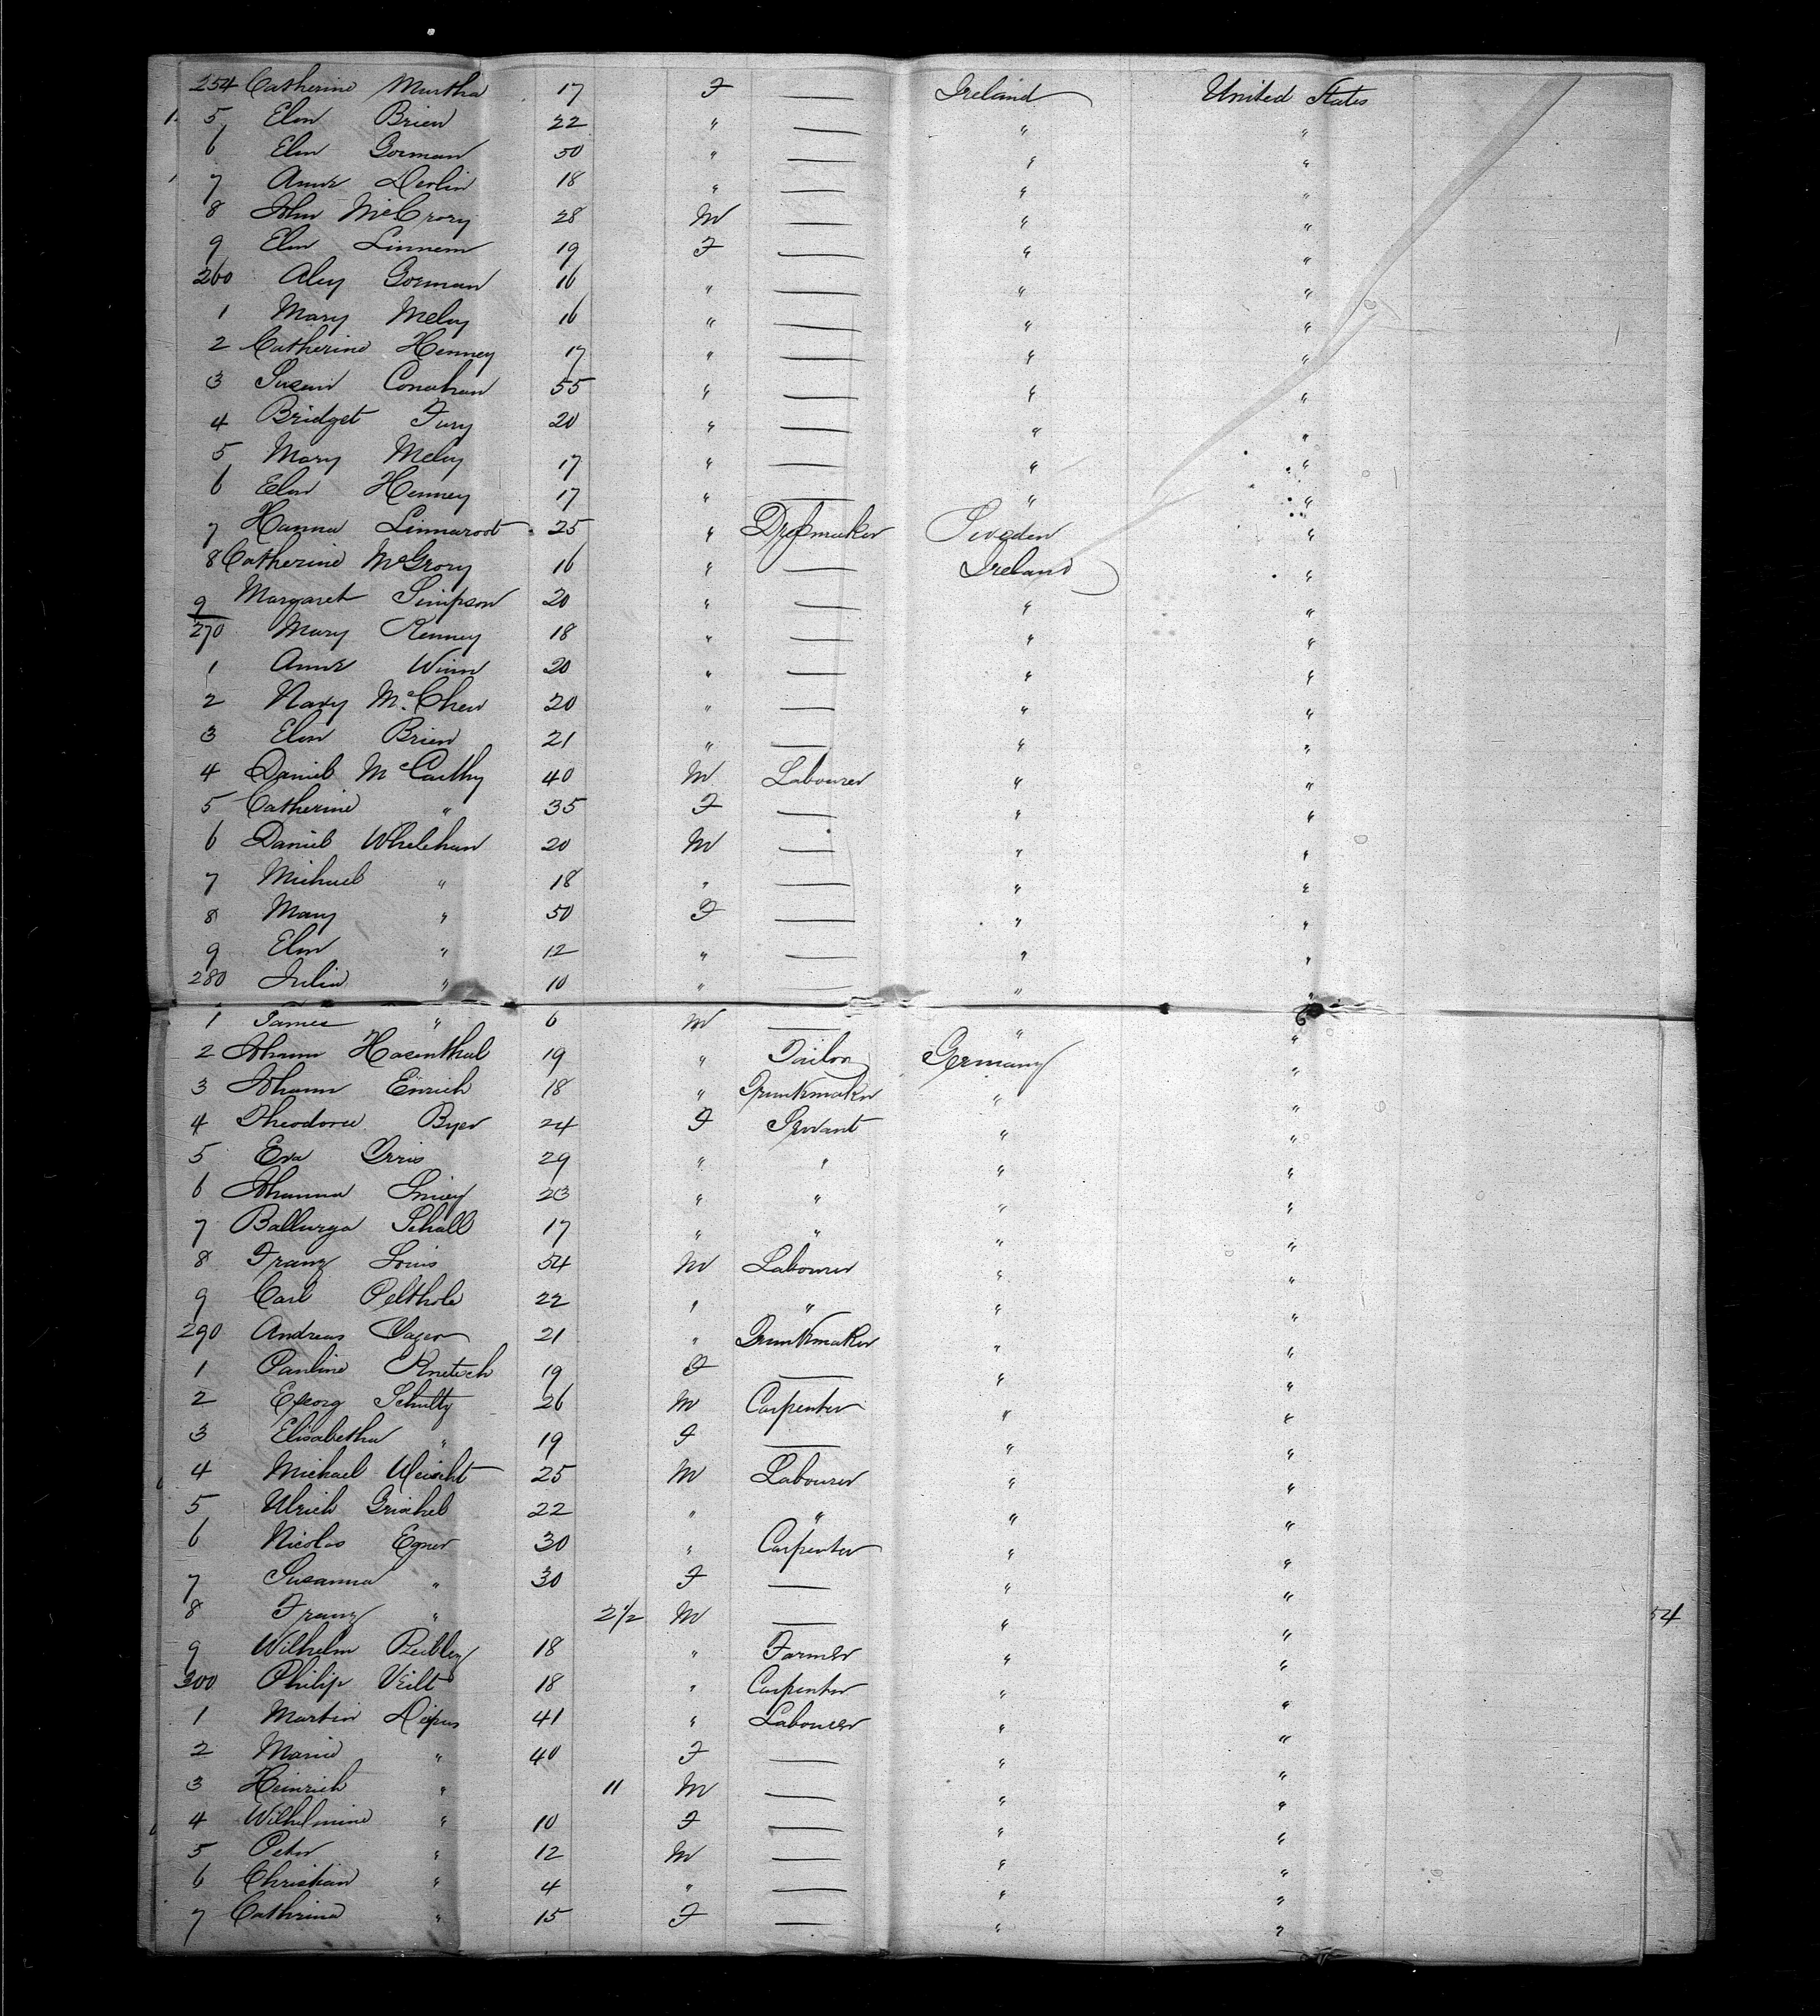 254 Catherine Murtha 17 F — Ireland United States
5 Elen Brien 22 " — " "
6 Elen Gorman 50 " — " "
7 Anne Devlin 18 " — " "
8 John McCrory 28 M — " "
9 Elen Linnem 19 F — " "
260 Aley Gorman 16 " — " "
1 Mary Meley 16 " — " "
2 Catherine Henney 17 " — " "
3 Susan Conahan 55 " — " "
4 Bridget Fury 20 " — " "
5 Mary Meley 17 " — " "
6 Elen Henney 17 " — " "
7 Hanna Linnaroot 25 " Dressmaker Sweden "
8 Catherine McGrory 16 " — Ireland "
9 Margaret Simpson 20 " — " "
270 Mary Kenney 18 " — " "
1 Anne Winn 20 " — " "
2 Mary McChen 20 " — " "
3 Elen Brien 21 " — " "
4 Daniel McCarthy 40 M Labourer " "
5 Catherine " 35 F — " "
6 Daniel Whelehan 20 M — " "
7 Michael " 18 " — " "
8 Mary " 50 F — " "
9 Elen " 12 " — " "
280 Julia " 10 " — " "
1 James " 6 M — " "
2 Johann Hasenthal 19 " Tailor Germany "
3 Johann Enrich 18 " Trunkmaker " "
4 Theodora Byer 24 F Servant " "
5 Eva 29 " " " "
6 Johanna 23 " " " "
7 Ballurga Schall 17 " " " "
8 Franz Louis 54 M Labourer " "
9 Carl Pelthole 22 " " " "
290 Andreas Yager 21 " Trunkmaker " "
1 Pauline Knetsch 19 F — " "
2 Georg Schultz 26 M Carpenter " "
3 Elisabetha " 19 F — " "
4 Michael 25 M Labourer " "
5 Ulrich Grischel 22 " " " "
6 Nicolas Egner 30 " Carpenter " "
7 Susanna " 30 F — " "
8 Franz " 2 1/2 M — " "
54
9 Wilhelm 18 " Farmer " "
300 Philip Veilt 18 " Carpenter " "
1 Martin Dipus 41 " Labourer " "
2 Marie " 40 F — " "
3 Heinrich " 11 M — " "
4 Wilhelmine " 10 F — " "
5 Peter " 12 M — " "
6 Christian " 4 " — " "
7 Cathrina " 15 F — " "